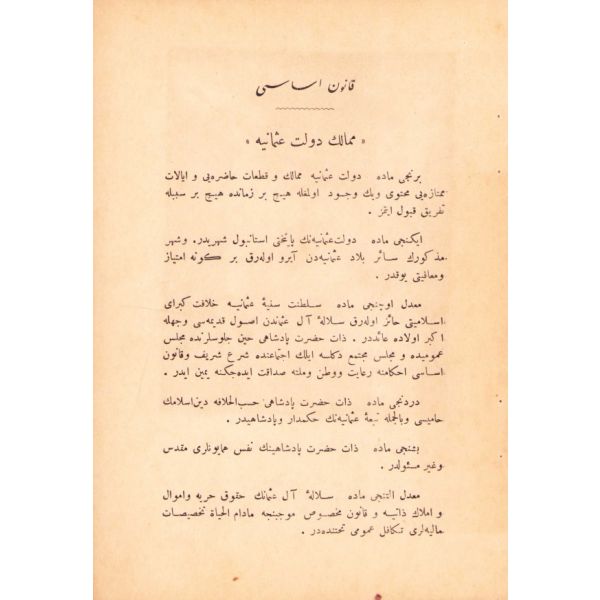 قانون اساسی
« ممالك دولت عثمانیه »
برنجی ماده   دولت عثمانیه ممالك و قطعات حاضره‌یی و ایالات
ممتازه‌یی محتوی ویك وجود اولمغله هیچ بر زمانده هیچ بر سببله
تفریق قبول ایتمز .
ایکنجی ماده   دولت عثمانیه‌نك پایتختی استانبول شهریدر. وشهر
مذکورك سائر بلاد عثمانیه‌دن آیرو اوله‌رق بر کونه امتیاز
ومعافیتی یوقدر .
معدل اوچنجی ماده   سلطنت سنیهٔ عثمانیه خلافت کبرای
اسلامیتی حائز اوله‌رق سلالهٔ آل عثماندن اصول قدیمه‌سی وجهله
اکبر اولاده عائددر . ذات حضرت پادشاهی حین جلوسلرنده مجلس
عمومیده و مجلس مجتمع دکلسه ایلك اجتماعنده شرع شریف وقانون
اساسی احکامنه رعایت ووطن وملته صداقت ایده‌جکنه یمین ایدر .
دردنجی ماده   ذات حضرت پادشاهی حسب‌الخلافه دین‌اسلامك
حامیسی وبالجمله تبعهٔ عثمانیه‌نك حکمدار وپادشاهیدر .
بشنجی ماده   ذات حضرت پادشاهینك نفس همایونلری مقدس
وغیر مسئولدر .
معدل التنجی ماده   سلالهٔ آل عثمانك حقوق حریه واموال
و املاك ذاتیه و قانون مخصوص موجبنجه مادام الحیاة تخصیصات
مالیه‌لری تکافل عمومی تحتنده‌در .